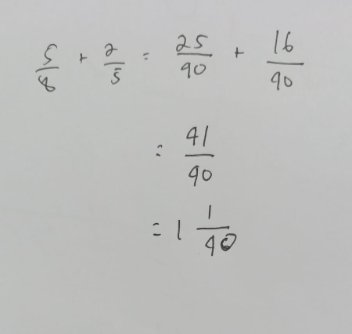 5/8 + 2/5 = 25/40 + 16/40
= 41/40
= 1 1/40